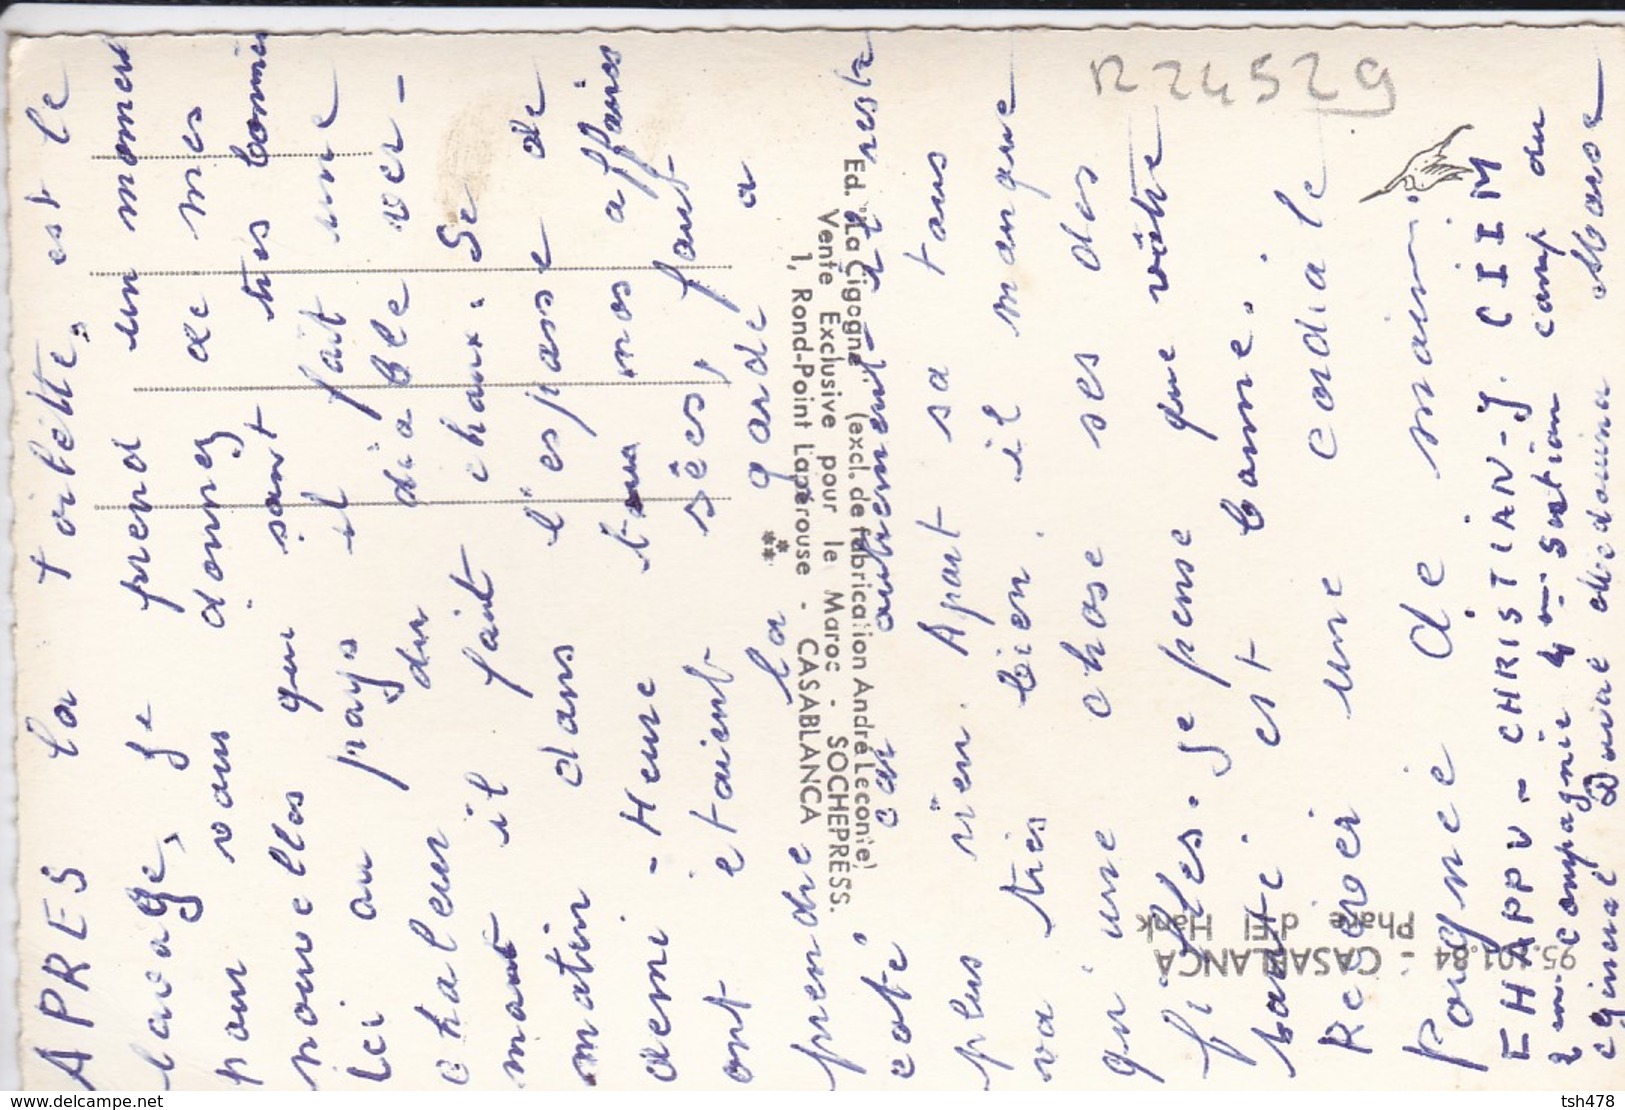 APRES la toilette, est le
lavage, je prend un moment
pour vous donnez de mes
nouvelles qui sont très bonnes
ici au pays il fait une
chaleur du diable ver-
ment il fait chaux. Se
matin dans l'espasse de
demi-Heure tous mos affaires
ont étaient sêcs, faut
prendre la garde a
coté car autrement sa reste
plus rien. Apart sa tous
va très bien. il manque
qu'une chose ses des
filles. Je pense que vôtre
santé est bonne.
Recevez une cordiale
Poignée de main.
EHAPPV - CHRISTIAN-J. CIIM
2 em. compagnie 4 em Section camp du
Maroc
R24529
Ed. "La Cigogne" (excl. de fabrication André Leconte)
Vente Exclusive pour le Maroc - SOCHEPRESS.
1, Rond-Point Lapérouse - CASABLANCA
95.101.84 - CASABLANCA
Phare d'El Hank
www.delcampe.net
tsh478